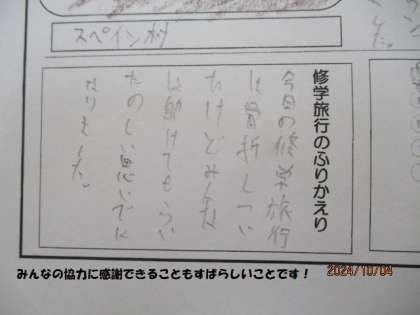 スペイン村
修学旅行のふりかえり
今日の修学旅行
は骨折してい
たけどみんな
に助けてもらい
たのしい思いでに
なりました。
みんなの協力に感謝できることもすばらしいことです！
2024/10/04